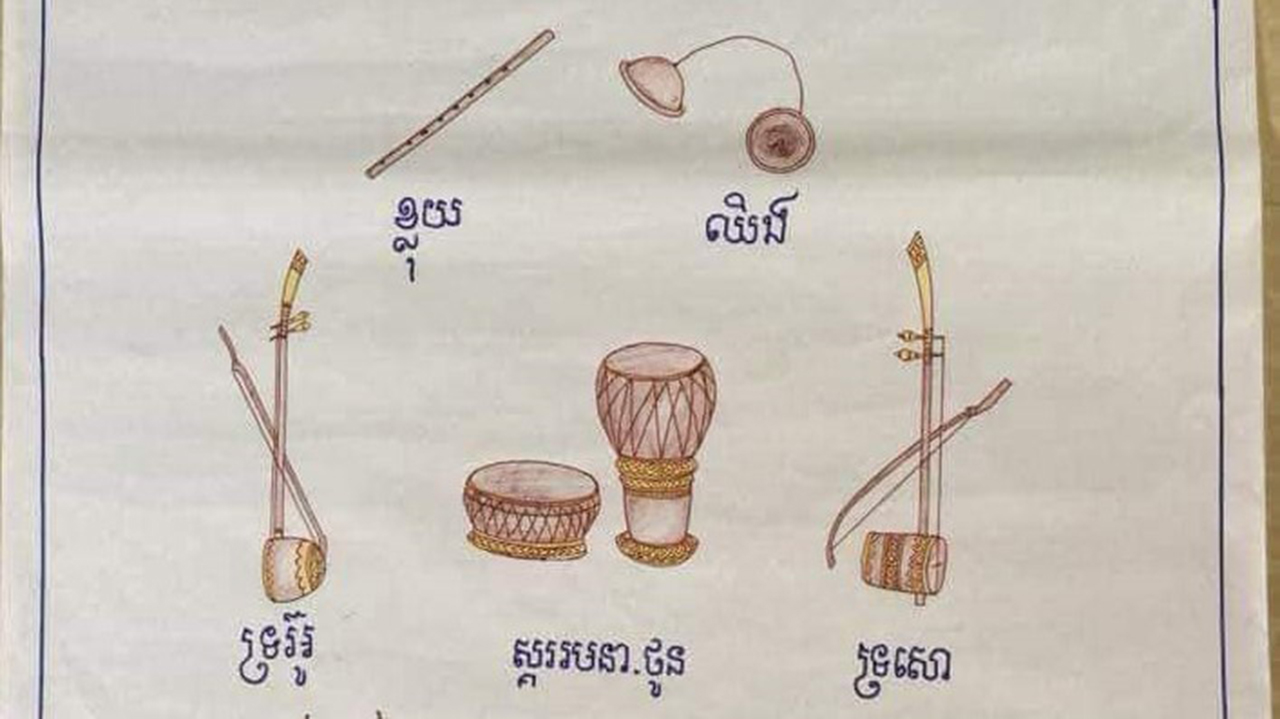 ខ្លុយ
ឈិង
ទ្រអ៊ូ
ស្គររមនា.ថូន
ទ្រសោ